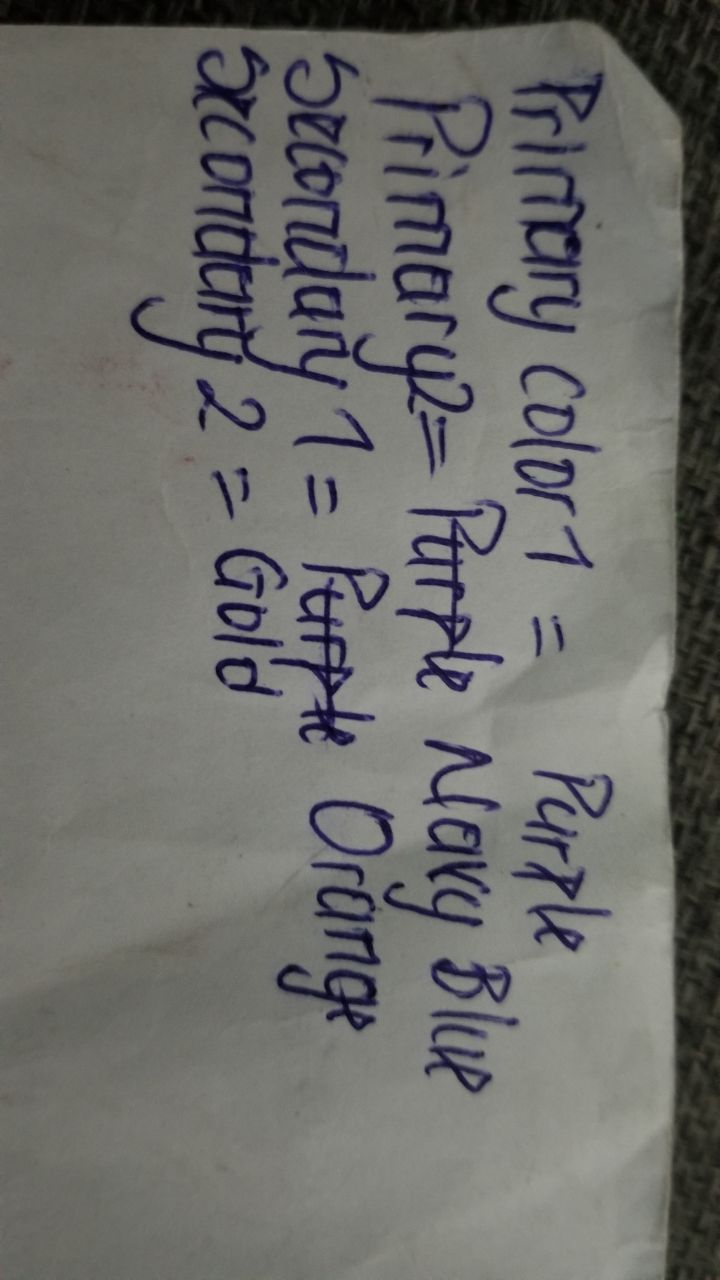 Primary color 1 = Purple
Primary 2 = Purple Navy Blue
Secondary 1 = Purple Orange
Secondary 2 = Gold